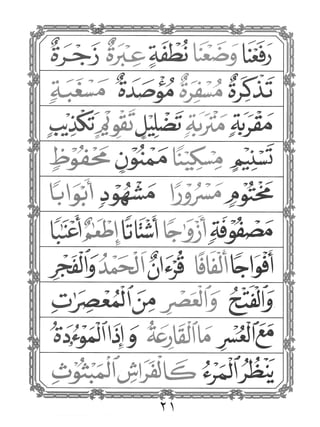 رَفَعْنَا وَضَعْنَا نُطْفَةٍ عِبْرَةٌ زَجْرَةٌ
تَذْكِرَةٌ مُسْفِرَةٌ مُؤْصَدَةٌ مَسْغَبَةٍ
مَقْرَبَةٍ مَتْرَبَةٍ تَضْلِيْلٍ تَقْوِيْمٍ تَكْذِيْبٍ
تَسْنِيْمٍ مِسْكِيْنًا مَمْنُوْنٍ مَحْفُوْظٍ
مَخْتُوْمٍ مَسْرُوْرًا مَشْهُوْدٍ أَبْوَابًا
مَصْفُوْفَةٍ أَزْوَاجًا أَشْتَاتًا إِطْعَٰمٌ أَعْنَٰبًا
أَفْوَاجًا أَلْفَافًا قُرْءَانٌ الْحَمْدُ وَٱلْفَجْرِ
وَٱلْفَتْحُ وَٱلْعَصْرِ مِنَ ٱلْمُعْصِرَٰتِ
مَعَ ٱلْعُسْرِ مَا ٱلْقَارِعَةُ وَإِذَا ٱلْمَوْءُدَةُ
يَنْظُرُ ٱلْمَرْءُ كَٱلْفَرَاشِ ٱلْمَبْثُوْثِ
٢١